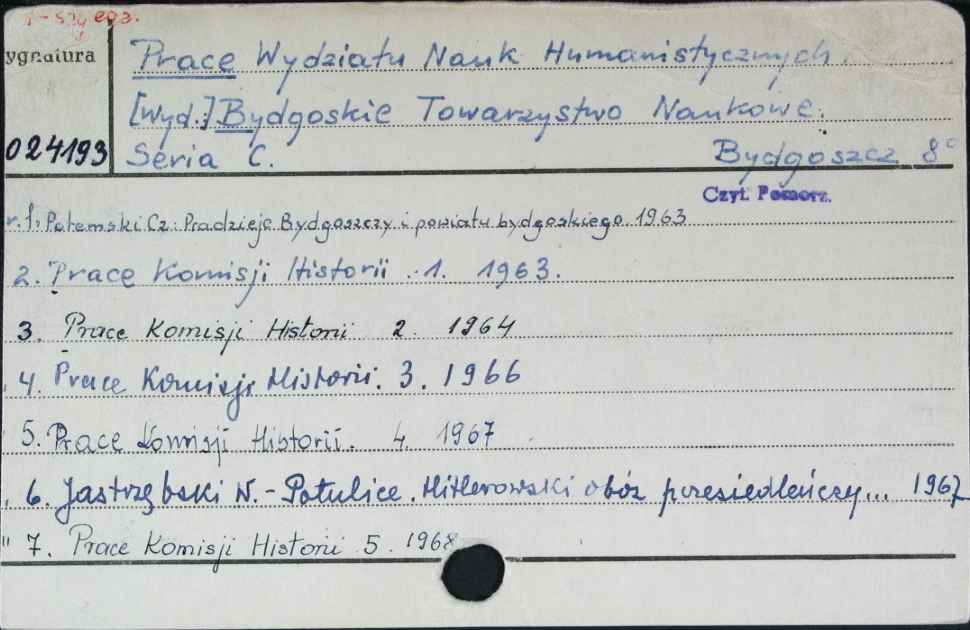 egz.
ygnatura
Prace Wydziału Nauk Humanistycznych.
[Wyd.:] Bydgoskie Towarzystwo Naukowe.
024193
Seria C. Bydgoszcz 8°
Czyt. Pomorz.
r. 1. Potemski Cz.: Pradzieje Bydgoszczy i powiatu bydgoskiego. 1963
2. Prace Komisji Historii. 1. 1963.
3. Prace Komisji Historii 2. 1964
4. Prace Komisji Historii. 3. 1966
5. Prace Komisji Historii. 4. 1967
6. Jastrzębski W. - Potulice. Hitlerowski obóz przesiedleńczy... 1967
" 7. Prace Komisji Historii 5. 1968